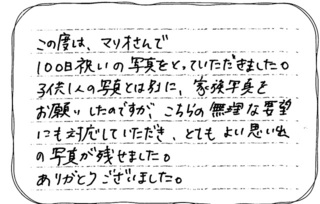 この度は、マリオさんで
100日祝いの写真をとっていただきました。
3代1人の写真とは別に、家族写真を
お願いしたのですが、こちらの無理な要望
にも対応していただき、とてもよい思い出
の写真が残せました。
ありがとうございました。